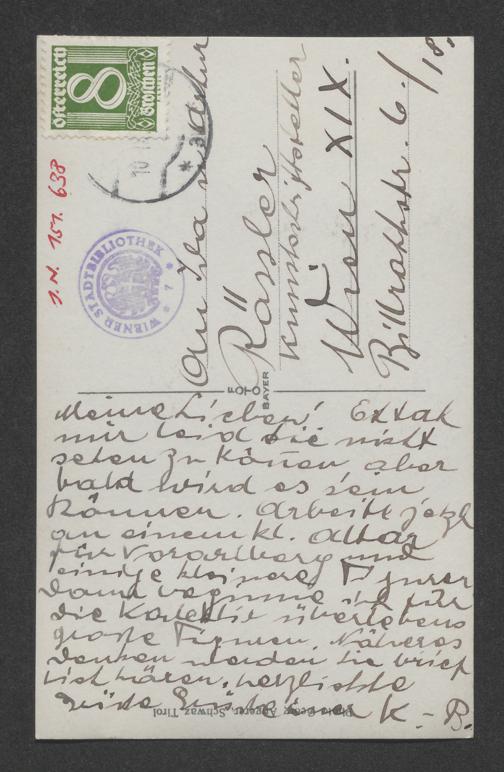 Österreich
8
Groschen
J.N. 151.638
WIENER STADTBIBLIOTHEK
An Ida u Artur
Rössler
Kunstschriftsteller
Wien XIX.
Billrothstr. 6./18.
FOTO
BAYER
Meine Lieben! Es tat
mir leid Sie nicht
sehen zu können aber
bald wird es sein
können. Arbeite jetzt
an einem kl. Altar
für Vorarlberg und
einige kleinere Figuren
Dann beginne ich für
die überlebens
grosse Figuren. Näheres
werden Sie brief
lich hören. herzlichste
Grüsse K - B.
Photo Georg Angerer, Schwaz, Tirol